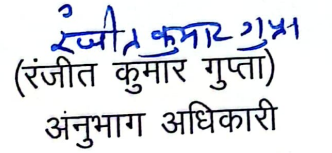 रंजीत कुमार गुप्ता
(रंजीत कुमार गुप्ता)
अंनुभाग अधिकारी